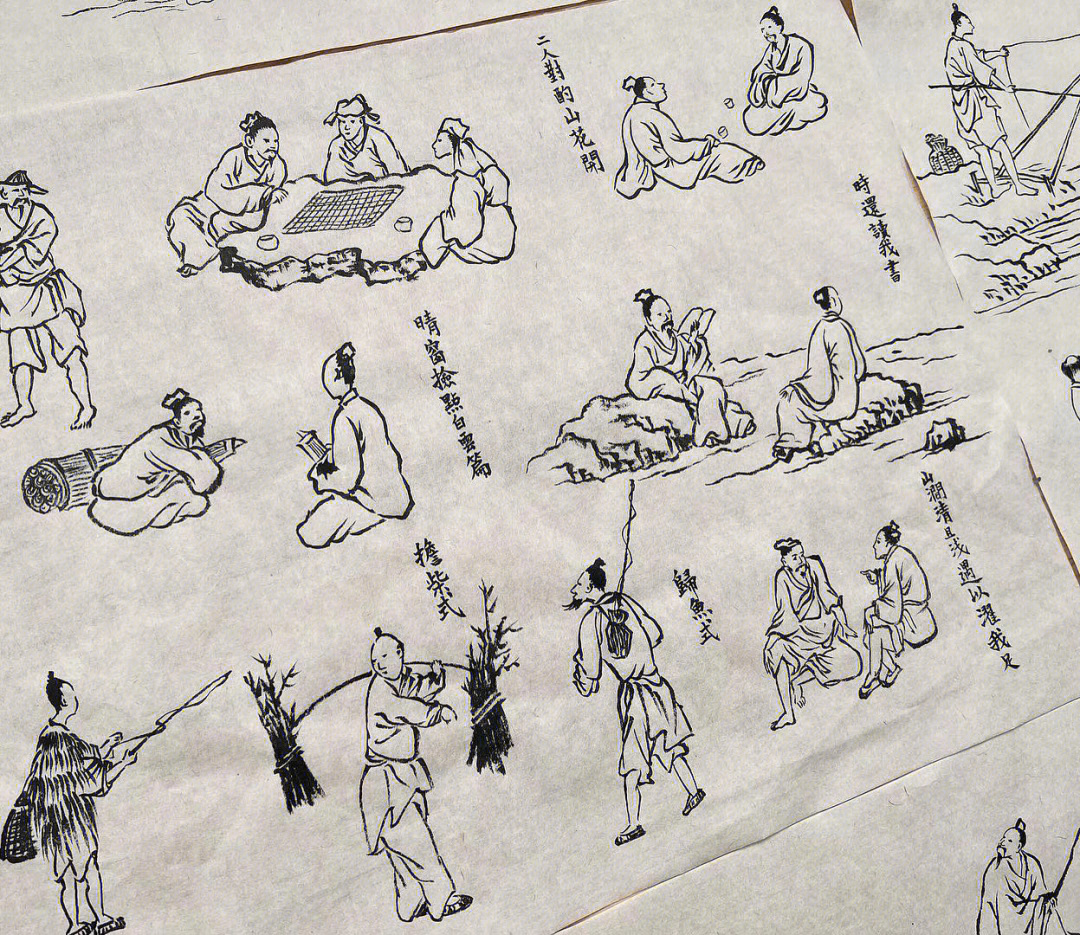 二人對酌山花開
時還讀我書
晴窗撿點白雲篇
山澗清且浅遇以濯我足
擔柴式
歸魚式